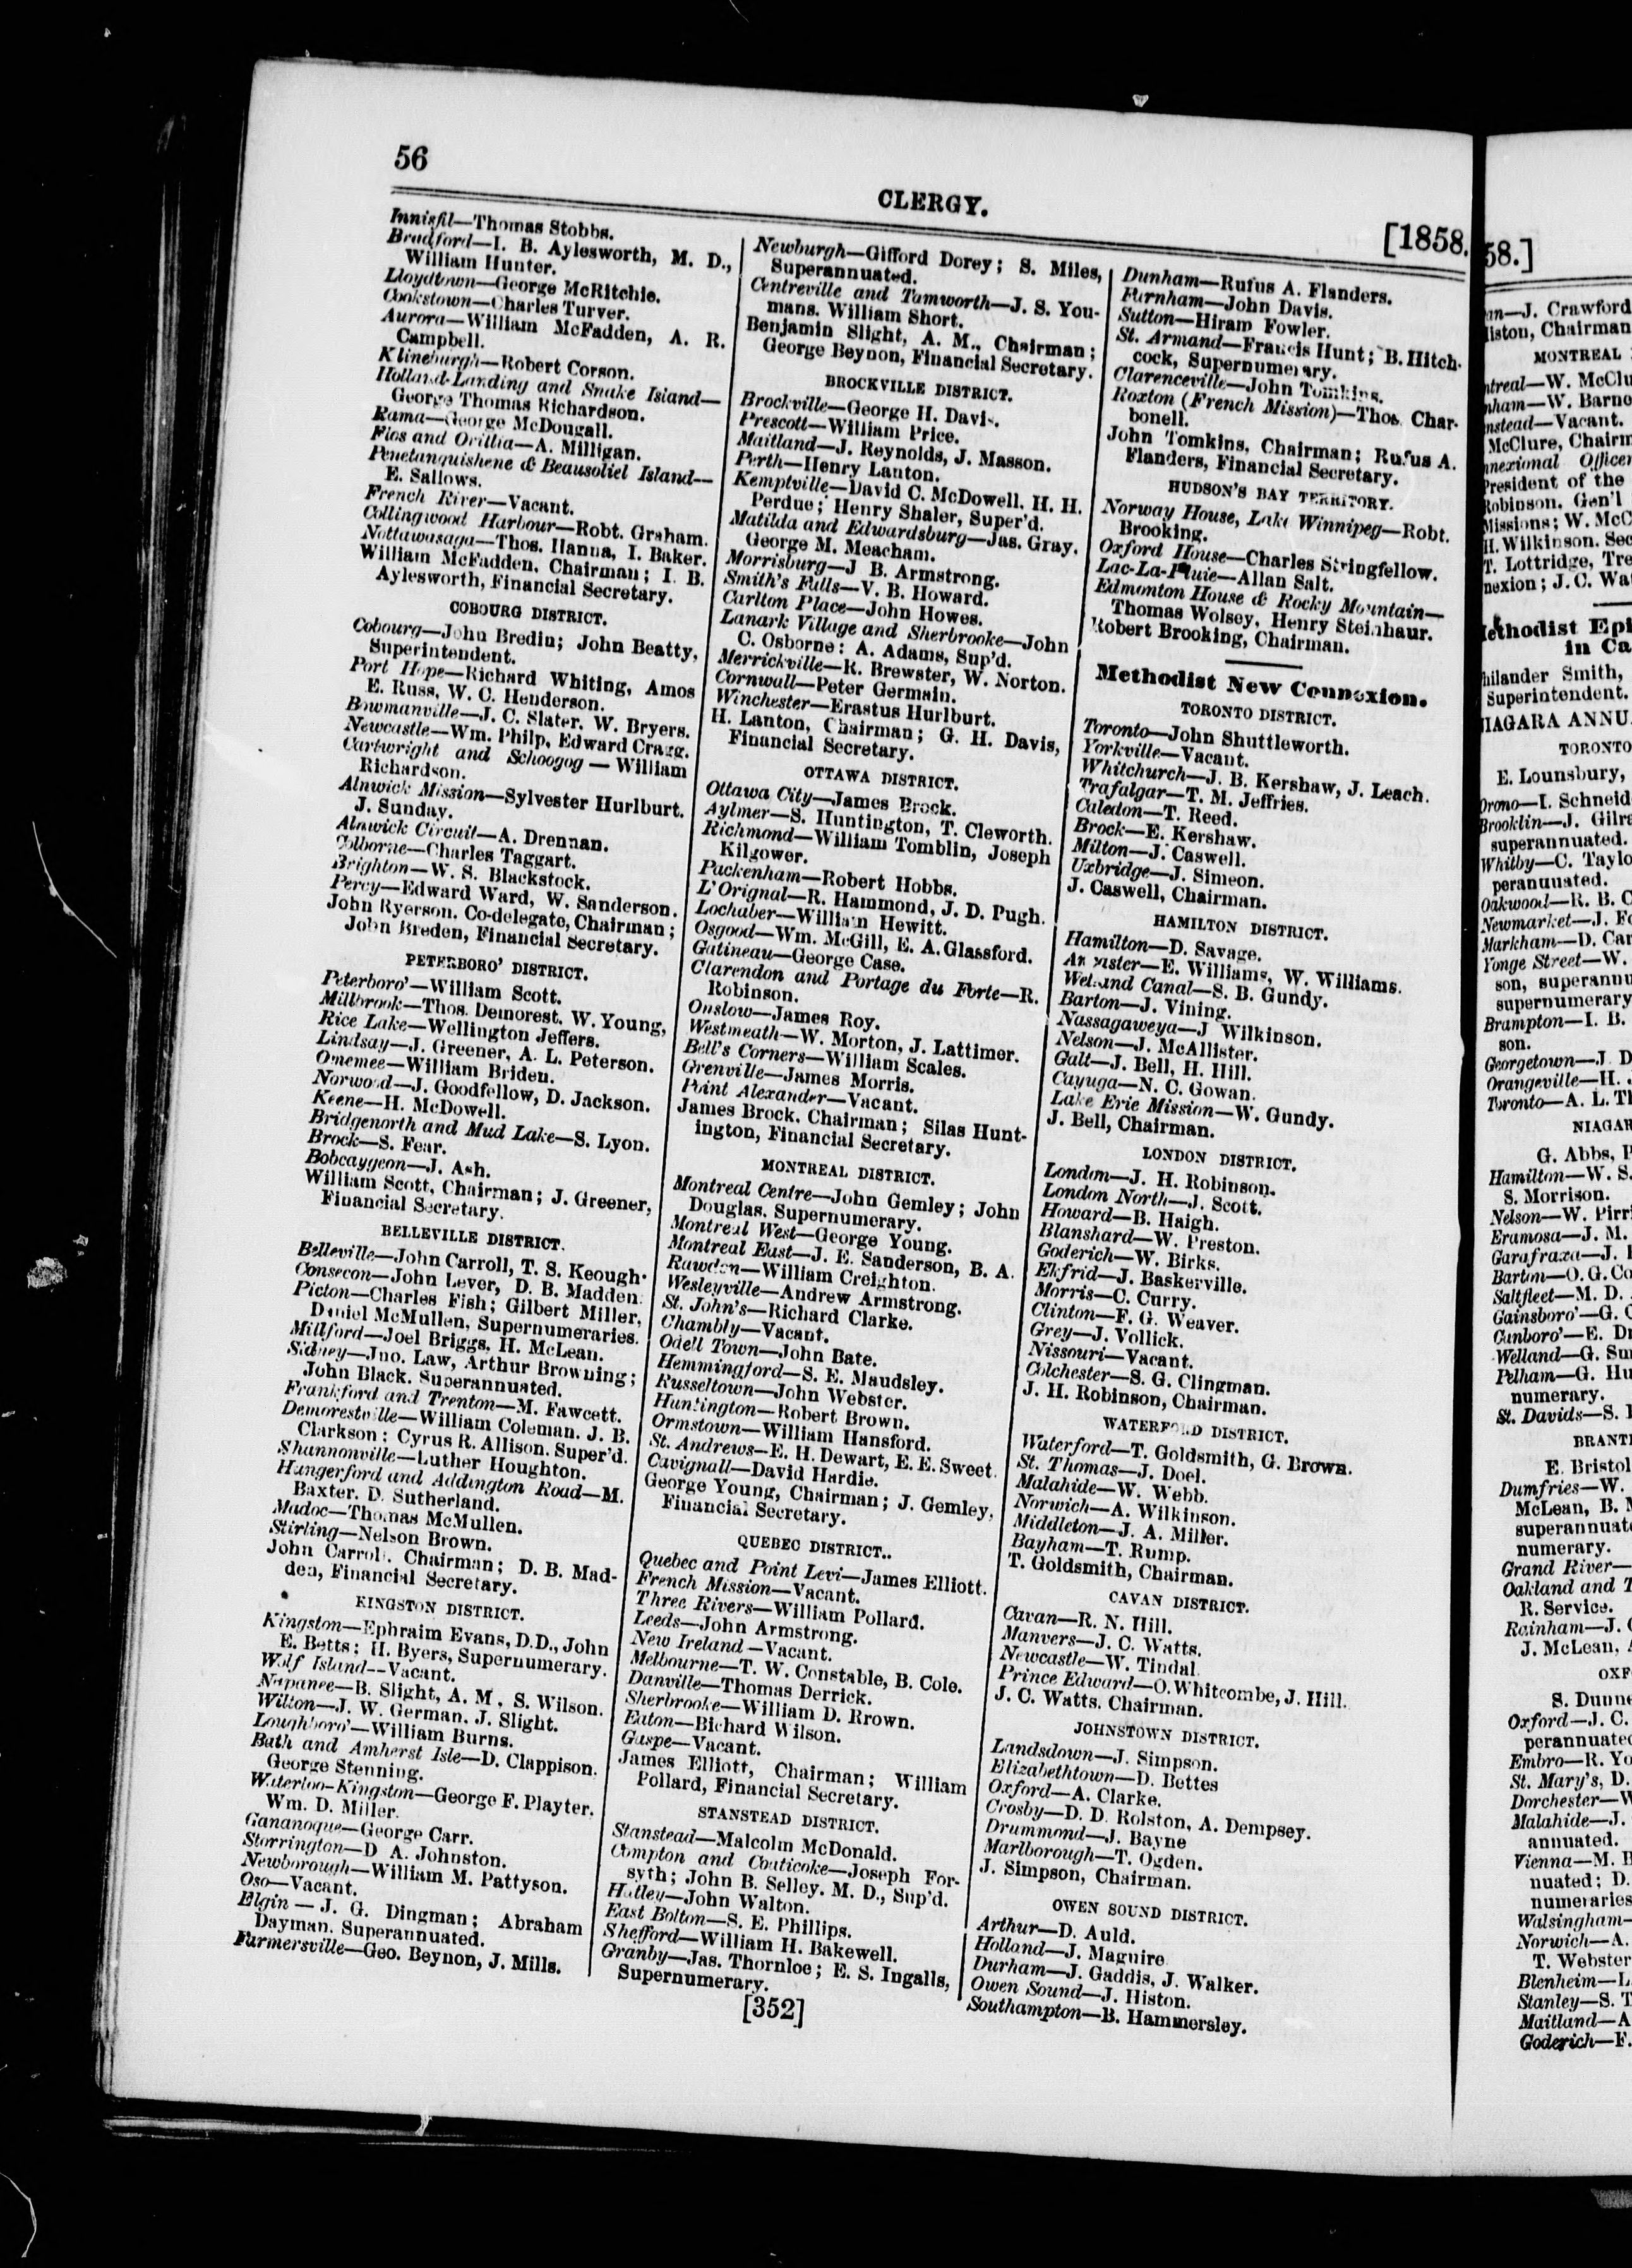 56
CLERGY.
[1858.
Innisfil—Thomas Stobbs.
Bradford—I. B. Aylesworth, M. D.,
William Hunter.
Lloydtown—George McRitchie.
Cookstown—Charles Turver.
Aurora—William McFadden, A. R.
Campbell.
Klineburgh—Robert Corson.
Holland-Landing and Snake Island—
George Thomas Richardson.
Rama—George McDougall.
Flos and Orillia—A. Milligan.
Penetanguishene & Beausoliel Island—
E. Sallows.
French River—Vacant.
Collingwood Harbour—Robt. Graham.
Nottawasaga—Thos. Hanna, I. Baker.
William McFadden, Chairman; I. B.
Aylesworth, Financial Secretary.
COBOURG DISTRICT.
Cobourg—John Bredin; John Beatty,
Superintendent.
Port Hope—Richard Whiting, Amos
E. Russ, W. C. Henderson.
Bowmanville—J. C. Slater, W. Bryers.
Newcastle—Wm. Philp, Edward Cragg.
Cartwright and Schoogog — William
Richardson.
Alnwick Mission—Sylvester Hurlburt.
J. Sunday.
Alnwick Circuit—A. Drennan.
Colborne—Charles Taggart.
Brighton—W. S. Blackstock.
Percy—Edward Ward, W. Sanderson.
John Ryerson, Co-delegate, Chairman;
John Breden, Financial Secretary.
PETERBORO' DISTRICT.
Peterboro'—William Scott.
Millbrook—Thos. Demorest, W. Young,
Rice Lake—Wellington Jeffers.
Lindsay—J. Greener, A. L. Peterson.
Omemee—William Briden.
Norwood—J. Goodfellow, D. Jackson.
Keene—H. McDowell.
Bridgenorth and Mud Lake—S. Lyon.
Brock—S. Fear.
Bobcaygeon—J. Ash.
William Scott, Chairman; J. Greener,
Financial Secretary.
BELLEVILLE DISTRICT.
Belleville—John Carroll, T. S. Keough.
Consecon—John Lever, D. B. Madden.
Picton—Charles Fish; Gilbert Miller,
Daniel McMullen, Supernumeraries.
Millford—Joel Briggs, H. McLean.
Sidney—Jno. Law, Arthur Browning;
John Black, Superannuated.
Frankford and Trenton—M. Fawcett.
Demorestville—William Coleman, J. B.
Clarkson; Cyrus R. Allison, Super'd.
Shannonville—Luther Houghton.
Hungerford and Addington Road—M.
Baxter, D. Sutherland.
Madoc—Thomas McMullen.
Stirling—Nelson Brown.
John Carroll, Chairman; D. B. Mad-
den, Financial Secretary.
KINGSTON DISTRICT.
Kingston—Ephraim Evans, D.D., John
E. Betts; H. Byers, Supernumerary.
Wolf Island—Vacant.
Napanee—B. Slight, A. M., S. Wilson.
Wilton—J. W. German, J. Slight.
Loughboro'—William Burns.
Bath and Amherst Isle—D. Clappison.
George Stenning.
Waterloo-Kingston—George F. Playter.
Wm. D. Miller.
Gananoque—George Carr.
Storrington—D A. Johnston.
Newborough—William M. Pattyson.
Oso—Vacant.
Elgin — J. G. Dingman; Abraham
Dayman, Superannuated.
Farmersville—Geo. Beynon, J. Mills.
Newburgh—Gifford Dorey; S. Miles,
Superannuated.
Centreville and Tamworth—J. S. You-
mans, William Short.
Benjamin Slight, A. M., Chairman;
George Beynon, Financial Secretary.
BROCKVILLE DISTRICT.
Brockville—George H. Davis.
Prescott—William Price.
Maitland—J. Reynolds, J. Masson.
Perth—Henry Lanton.
Kemptville—David C. McDowell, H. H.
Perdue; Henry Shaler, Super'd.
Matilda and Edwardsburg—Jas. Gray,
George M. Meacham.
Morrisburg—J B. Armstrong.
Smith's Falls—V. B. Howard.
Carlton Place—John Howes.
Lanark Village and Sherbrooke—John
C. Osborne; A. Adams, Sup'd.
Merrickville—R. Brewster, W. Norton.
Cornwall—Peter Germain.
Winchester—Erastus Hurlburt.
H. Lanton, Chairman; G. H. Davis,
Financial Secretary.
OTTAWA DISTRICT.
Ottawa City—James Brock.
Aylmer—S. Huntington, T. Cleworth.
Richmond—William Tomblin, Joseph
Kilgower.
Packenham—Robert Hobbs.
L'Orignal—R. Hammond, J. D. Pugh.
Lochaber—William Hewitt.
Osgood—Wm. McGill, E. A. Glassford.
Gatineau—George Case.
Clarendon and Portage du Forte—R.
Robinson.
Onslow—James Roy.
Westmeath—W. Morton, J. Lattimer.
Bell's Corners—William Scales.
Grenville—James Morris.
Point Alexander—Vacant.
James Brock, Chairman; Silas Hunt-
ington, Financial Secretary.
MONTREAL DISTRICT.
Montreal Centre—John Gemley; John
Douglas, Supernumerary.
Montreal West—George Young.
Montreal East—J. E. Sanderson, B. A.
Rawdon—William Creighton.
Wesleyville—Andrew Armstrong.
St. John's—Richard Clarke.
Chambly—Vacant.
Odell Town—John Bate.
Hemmingford—S. E. Maudsley.
Russeltown—John Webster.
Huntington—Robert Brown.
Ormstown—William Hansford.
St. Andrews—E. H. Dewart, E. E. Sweet.
Cavignall—David Hardie.
George Young, Chairman; J. Gemley,
Financial Secretary.
QUEBEC DISTRICT..
Quebec and Point Levi—James Elliott.
French Mission—Vacant.
Three Rivers—William Pollard.
Leeds—John Armstrong.
New Ireland—Vacant.
Melbourne—T. W. Constable, B. Cole.
Danville—Thomas Derrick.
Sherbrooke—William D. Rrown.
Eaton—Bichard Wilson.
Gaspe—Vacant.
James Elliott, Chairman; William
Pollard, Financial Secretary.
STANSTEAD DISTRICT.
Stanstead—Malcolm McDonald.
Compton and Coaticoke—Joseph For-
syth; John B. Selley. M. D., Sup'd.
Hatley—John Walton.
East Bolton—S. E. Phillips.
Shefford—William H. Bakewell.
Granby—Jas. Thornloe; E. S. Ingalls,
Supernumerary.
Dunham—Rufus A. Flanders.
Farnham—John Davis.
Sutton—Hiram Fowler.
St. Armand—Francis Hunt; B. Hitch-
cock, Supernumerary.
Clarenceville—John Tomkins.
Roxton (French Mission)—Thos. Char-
bonell.
John Tomkins, Chairman; Rufus A.
Flanders, Financial Secretary.
HUDSON'S BAY TERRITORY.
Norway House, Lake Winnipeg—Robt.
Brooking.
Oxford House—Charles Stringfellow.
Lac-La-Pluie—Allan Salt.
Edmonton House & Rocky Mountain—
Thomas Wolsey, Henry Steinhaur.
Robert Brooking, Chairman.
Methodist New Connexion.
TORONTO DISTRICT.
Toronto—John Shuttleworth.
Yorkville—Vacant.
Whitchurch—J. B. Kershaw, J. Leach.
Trafalgar—T. M. Jeffries.
Caledon—T. Reed.
Brock—E. Kershaw.
Milton—J. Caswell.
Uxbridge—J. Simeon.
J. Caswell, Chairman.
HAMILTON DISTRICT.
Hamilton—D. Savage.
Ancaster—E. Williams, W. Williams.
Welland Canal—S. B. Gundy.
Barton—J. Vining.
Nassagaweya—J Wilkinson.
Nelson—J. McAllister.
Galt—J. Bell, H. Hill.
Cayuga—N. C. Gowan.
Lake Erie Mission—W. Gundy.
J. Bell, Chairman.
LONDON DISTRICT.
London—J. H. Robinson.
London North—J. Scott.
Howard—B. Haigh.
Blanshard—W. Preston.
Goderich—W. Birks.
Ekfrid—J. Baskerville.
Morris—C. Curry.
Clinton—F. G. Weaver.
Grey—J. Vollick.
Nissouri—Vacant.
Colchester—S. G. Clingman.
J. H. Robinson, Chairman.
WATERFORD DISTRICT.
Waterford—T. Goldsmith, G. Brown.
St. Thomas—J. Doel.
Malahide—W. Webb.
Norwich—A. Wilkinson.
Middleton—J. A. Miller.
Bayham—T. Rump.
T. Goldsmith, Chairman.
CAVAN DISTRICT.
Cavan—R. N. Hill.
Manvers—J. C. Watts.
Newcastle—W. Tindal.
Prince Edward—O. Whitcombe, J. Hill.
J. C. Watts, Chairman.
JOHNSTOWN DISTRICT.
Landsdown—J. Simpson.
Elizabethtown—D. Bettes
Oxford—A. Clarke.
Crosby—D. D. Rolston, A. Dempsey.
Drummond—J. Bayne
Marlborough—T. Ogden.
J. Simpson, Chairman.
OWEN SOUND DISTRICT.
Arthur—D. Auld.
Holland—J. Maguire.
Durham—J. Gaddis, J. Walker.
Owen Sound—J. Histon.
Southampton—B. Hammersley.
[352]
58.]
an—J. Crawford
liston, Chairman
MONTREAL
ntreal—W. McClu
nham—W. Barne
nstead—Vacant.
McClure, Chairm
nnexional Officer
President of the
Robinson, Gen'l
Missions; W. McC
H. Wilkinson, Sec
T. Lottridge, Tre
nexion; J. C. Wat
Methodist Epi
in Ca
hilander Smith,
Superintendent.
NIAGARA ANNU
TORONTO
E. Lounsbury,
Orono—I. Schneid
Brooklin—J. Gilr
superannuated.
Whitby—C. Taylo
perannuated.
Oakwood—R. B. C
Newmarket—J. F
Markham—D. Car
Yonge Street—W.
son, superannu
supernumerary
Brampton—I. B.
son.
Georgetown—J. D
Orangeville—H.
Toronto—A. L. Th
NIAGAR
G. Abbs, P
Hamilton—W. S.
S. Morrison.
Nelson—W. Pirr
Eramosa—J. M.
Garafraxa—J.
Barton—O. G. Co
Saltfleet—M. D.
Gainsboro'—G. C
Canboro'—E. D
Welland—G. Su
Pelham—G. Hu
numerary.
St. Davids—S.
BRANT
E. Bristol
Dumfries—W.
McLean, B.
superannuat
numerary.
Grand River—
Oakland and
R. Service.
Rainham—J. C
J. McLean,
OXF
S. Dunn
Oxford—J. C.
perannuate
Embro—R. Yo
St. Mary's, D.
Dorchester—W
Malahide—J.
annuated.
Vienna—M. B
nuated; D.
numeraries
Walsingham—
Norwich—A.
T. Webster
Blenheim—L
Stanley—S. T
Maitland—A
Goderich—F.